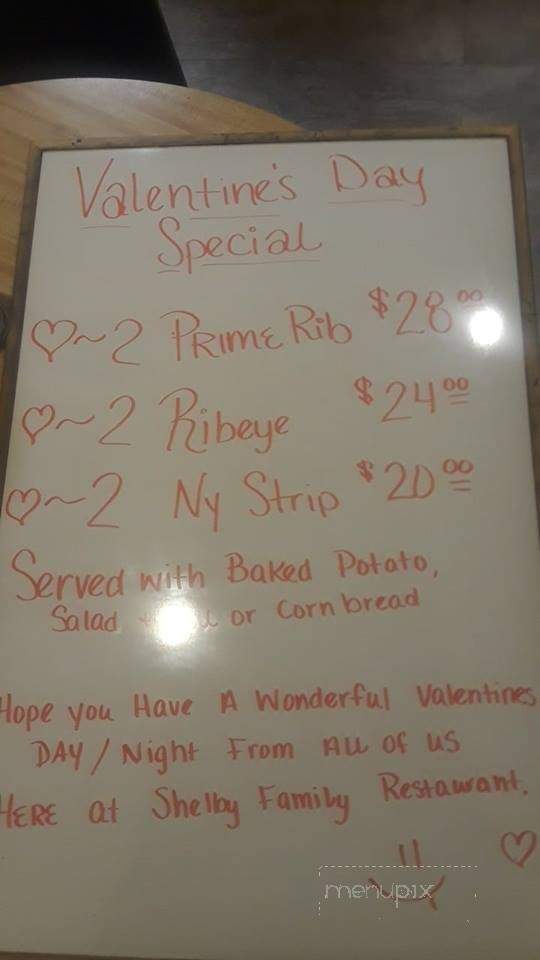 Valentine's Day
Special
♡~2 Prime Rib $28.00
♡~2 Ribeye $24.00
♡~2 Ny Strip $20.00
Served with Baked Potato,
Salad or Cornbread
Hope you Have A Wonderful Valentines
DAY/Night From All of us
HERE at Shelby Family Restaurant.
menupix